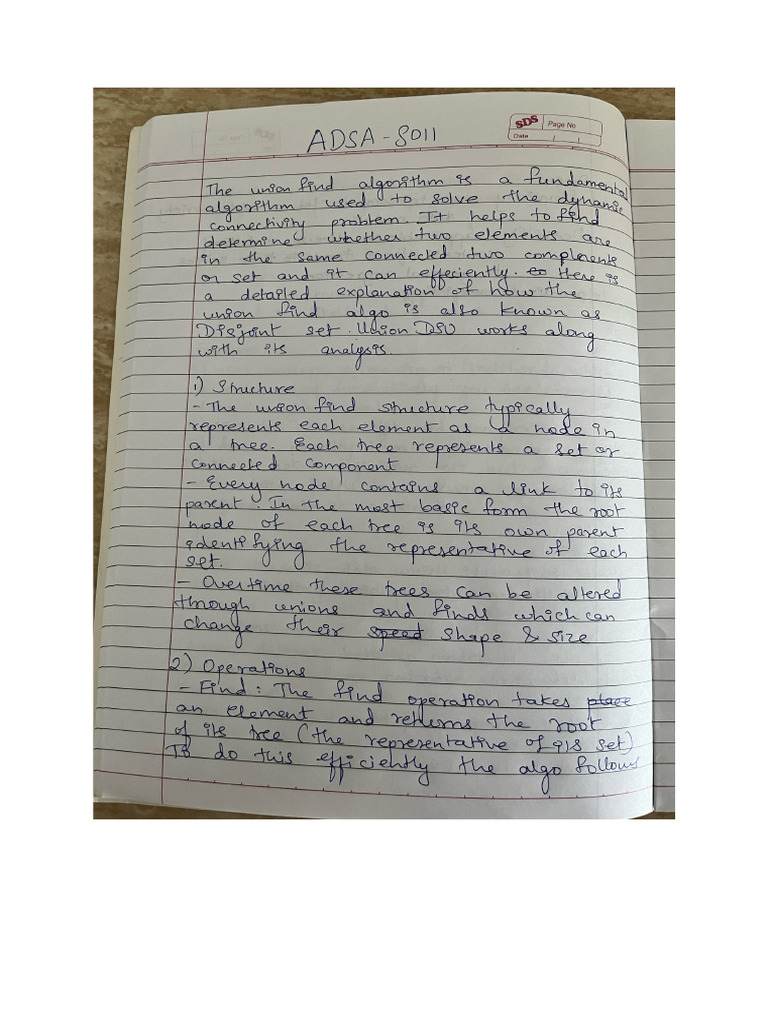 ADSA - 8011
SDS Page No
Date
The union find algorithm is a fundamental
algorithm used to solve the dynamic
connectivity problem. It helps to find
determine whether two elements are
in the same connected two complenente
or set and it can effeciently. to there is
a detailed explanation of how the
union find algo is also known as
Disjoint set. Union DSU works along
with its analysis.
1) Structure
- The union find structure typically
represents each element as a node in
a tree. Each tree represents a set or
connected component
- Every node contains a link to its
parent. In the most basic form the root
node of each tree is its own parent
identifying the representative of each
set.
- Overtime these trees can be altered
through unions and finds which can
change their speed shape & size
2) Operations
- Find: The find operation takes place
an element and returns the root
of its tree (the representative of its set)
To do this efficiently the algo follows